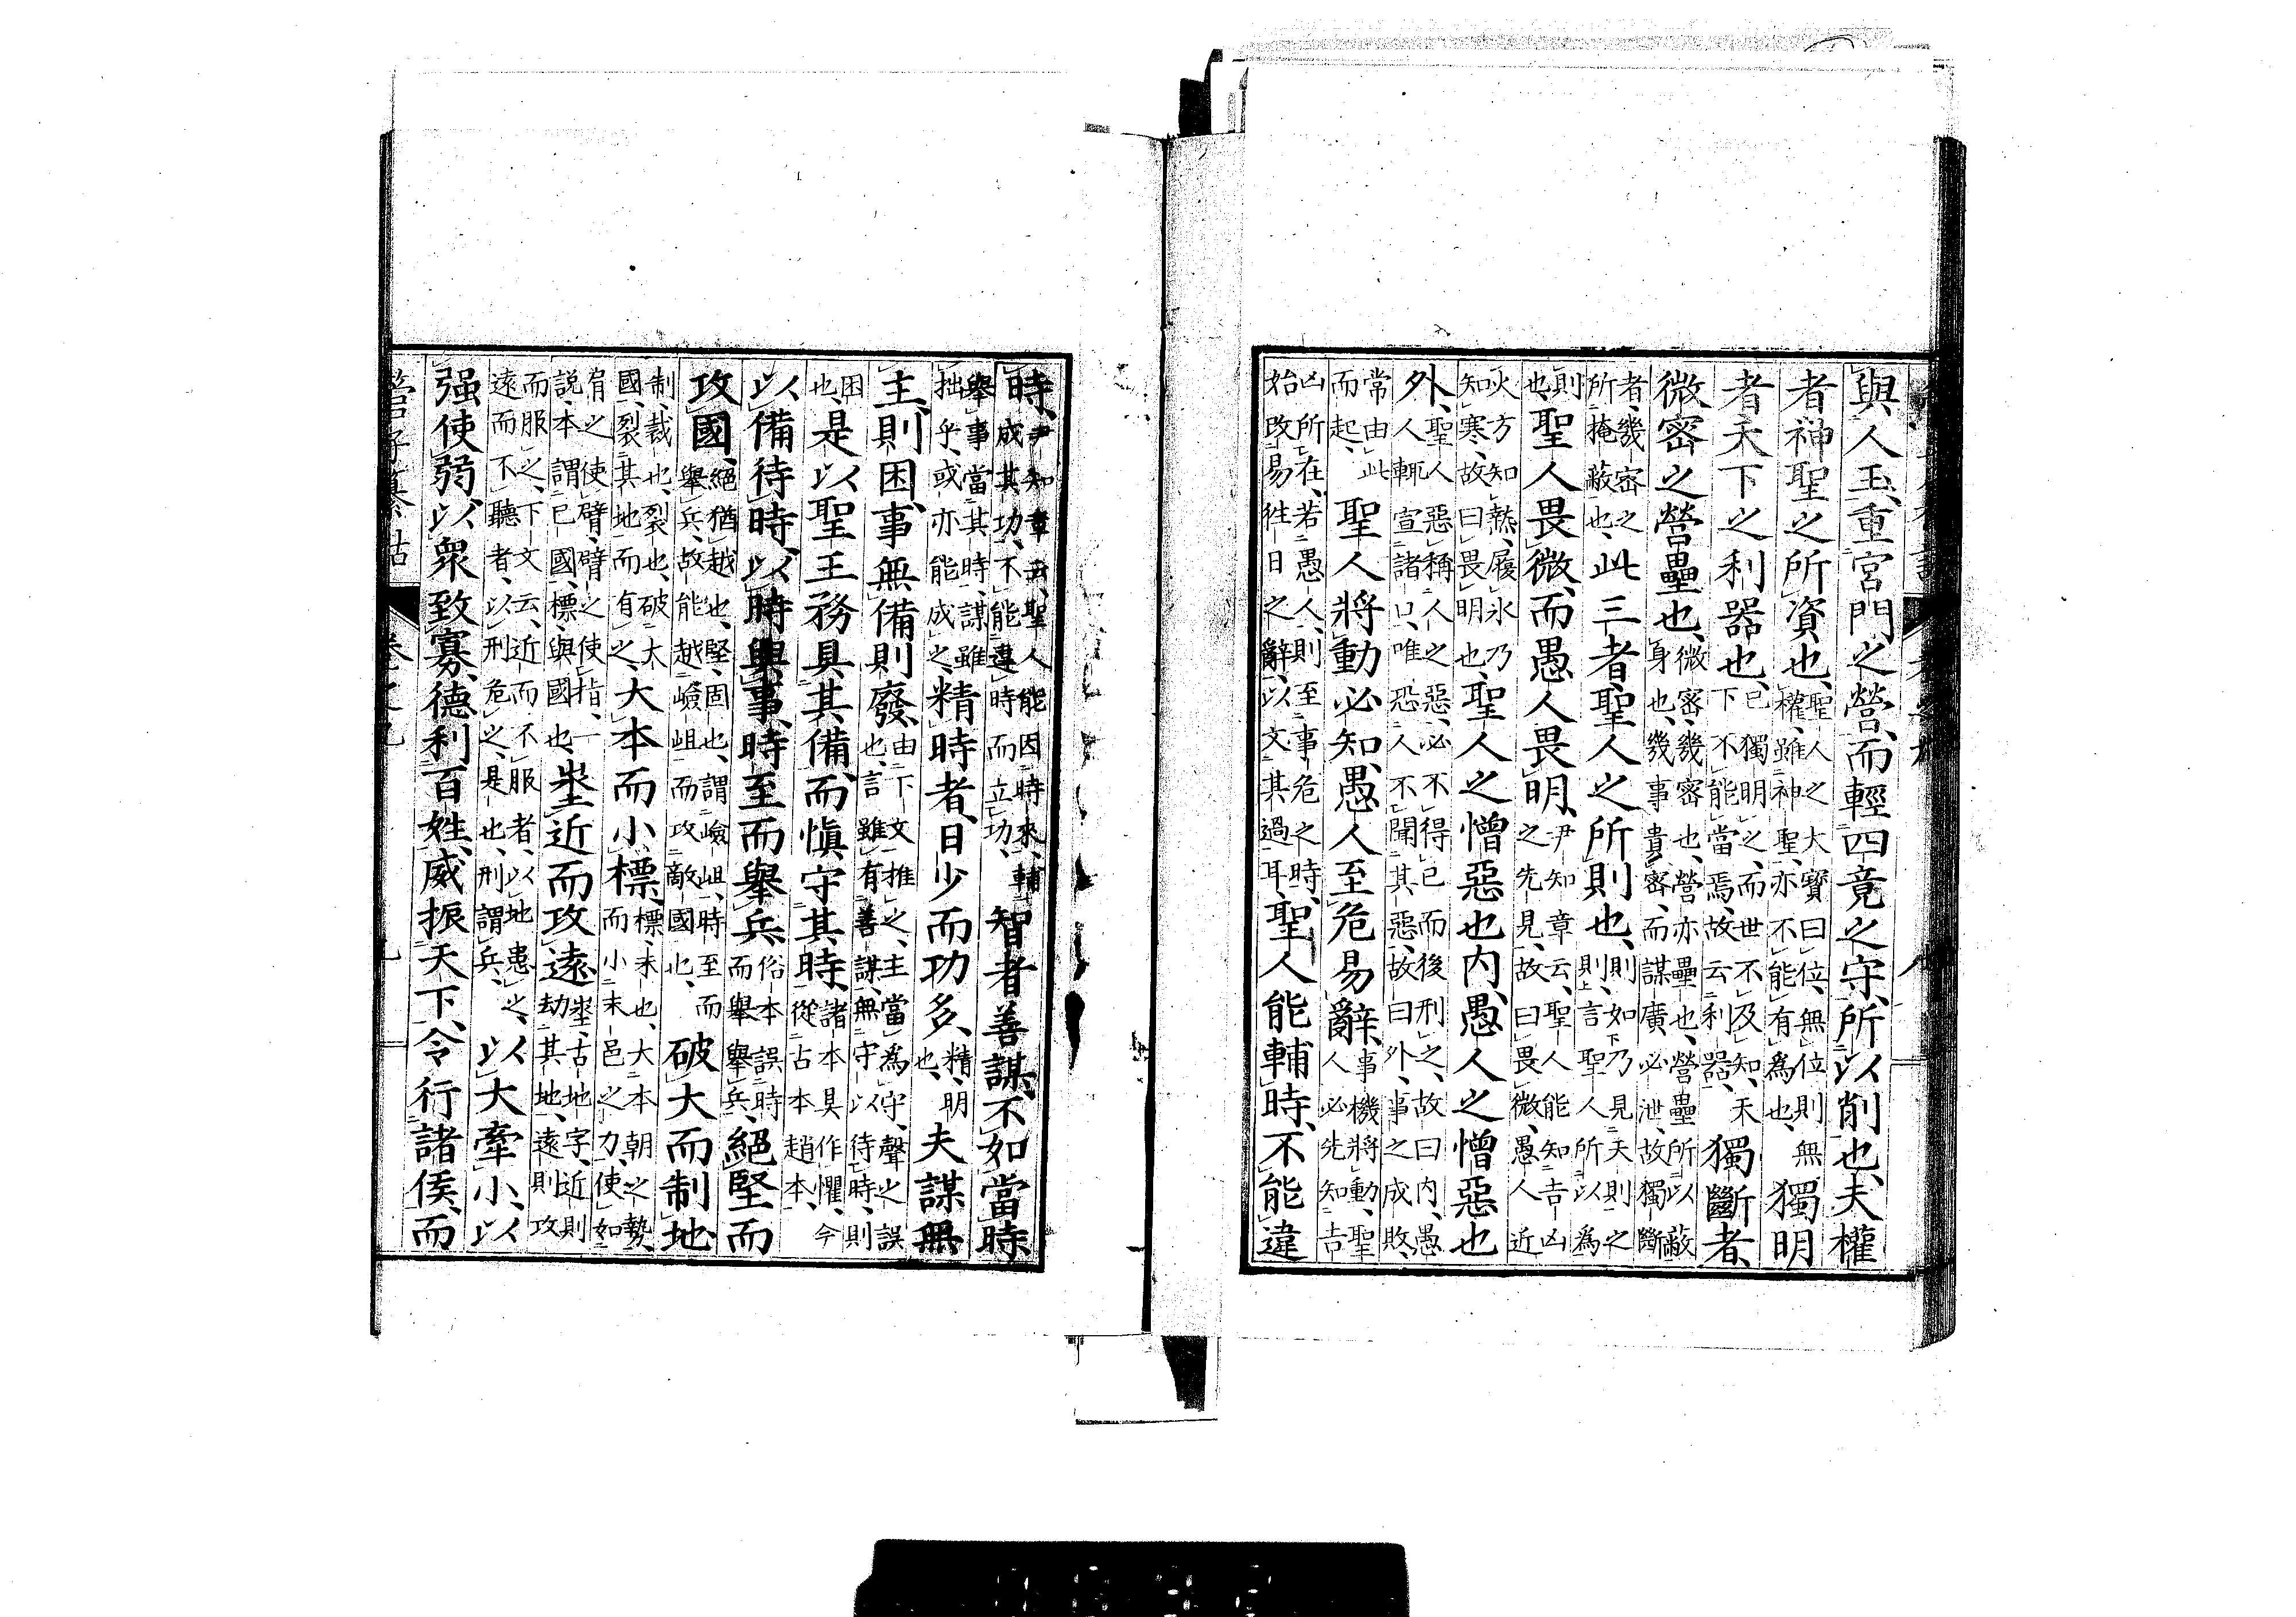 與人玉、重宮門之營、而輕四竟之守、所以削也、夫權
者神聖之所資也、聖人之大寶曰位、無位則無權、雖神聖、亦不能有爲也、獨明
者天下之利器也、已獨明之、而世不及知、天下不能當焉、故云利器、獨斷者、
微密之營壘也、微密、幾密也、營亦壘也、營壘所以蔽身也、幾事貴密、而謀廣必泄、故獨斷
者、幾密之所掩蔽也、此三者、聖人之所則也、則、如乃見天則之則、言聖人所以爲
則也、聖人畏微、而愚人畏明、尹知章云、聖人能知吉凶之先見、故曰畏微、愚人近
火方知熱、履氷乃知寒、故曰畏明也、聖人之憎惡也內、愚人之憎惡也
外、聖人惡稱人之惡、必不得已而後刑之、故曰內、愚人輒宣諸口、唯恐人不聞其惡、故曰外、事之成敗、
常由此而起、聖人將動必知、愚人至危易辭、事機將動、聖人必先知吉
凶所在、若愚人、則至事危之時、始改易往日之辭、以文其過耳、聖人能輔時、不能違
時、尹知章云、聖人能因時來、輔成其功、不能違時而立功、智者善謀、不如當時、
舉事當其時、謀雖拙乎、或亦能成之、精時者、日少而功多、精、明也、夫謀無
主、則困、事無備則廢、由下文推之、主當爲守、聲之誤也、言雖有善謀、無守以待時、則
困也、是以聖王務具其備、而慎守其時、諸本具作懼、今從古本趙本、
以備待時、以時興事、時至而舉兵、俗本誤時而舉舉兵、絕堅而
攻國、絕猶越也、堅、固也、謂嶮岨、時至而舉兵、故能越嶮岨而攻敵國也、破大而制地
制、裁也、裂也、破大國、裂其地而有之、大本而小標、標、末也、大本朝之勢、而小末邑之力、使如
肩之使臂、臂之使指、一說、本謂已國、標與國也、埊近而攻遠、埊古地字、近則劫其地、遠則攻
而服之、下文云、近而不服者、以地患之、遠而不聽者、以刑危之、是也、刑謂兵、以大牽小、以
强使弱、以衆致寡、德利百姓、威振天下、令行諸侯、而
管子纂詁